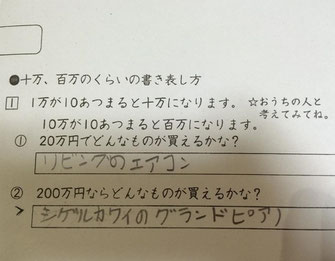 ●十万、百万のくらいの書き表し方
1 1万が10あつまると十万になります。 ☆おうちの人と
考えてみてね。
10万が10あつまると百万になります。
① 20万円でどんなものが買えるかな?
リビングのエアコン
② 200万円ならどんなものが買えるかな?
シゲルカワイのグランドピアノ